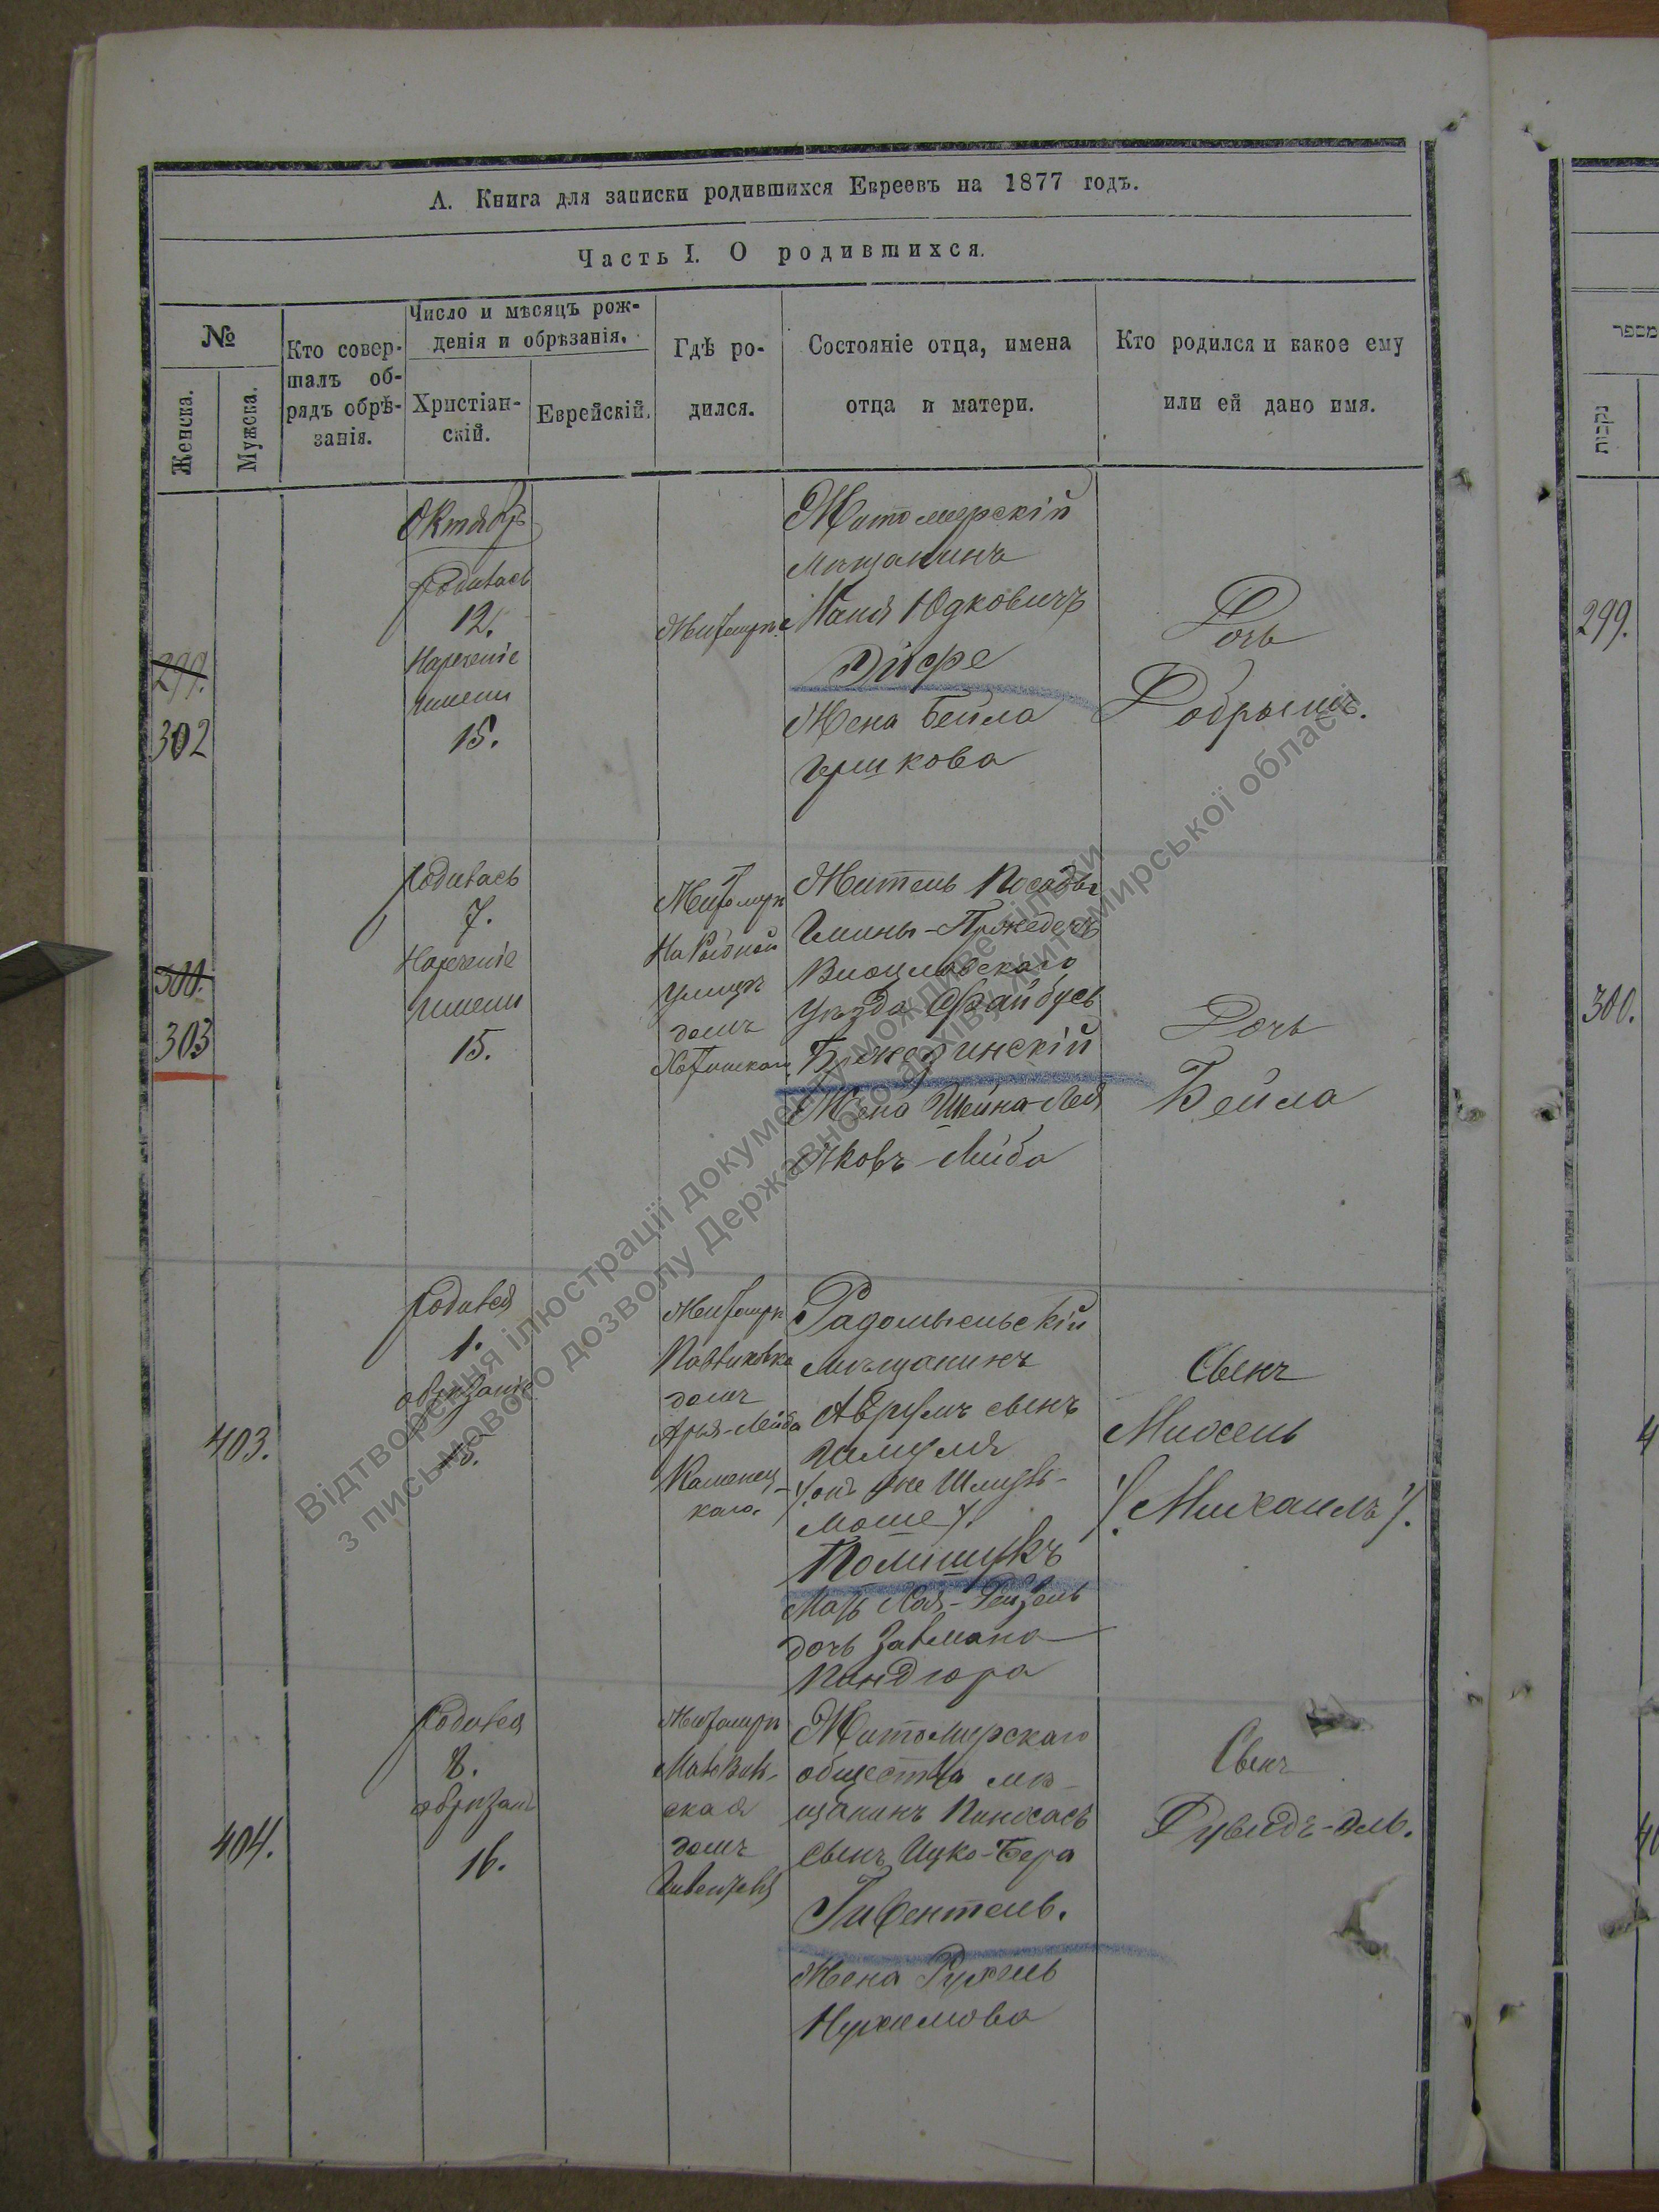 А. Книга для записки родившихся Евреевъ на 1877 годъ.
Часть I. О родившихся.
№
Женска.
Мужска.
Кто совер-
шалъ об-
рядъ обрѣ-
занія.
Число и мѣсяцъ рож-
денія и обрѣзанія.
Христіан-
скій.
Еврейскій.
Гдѣ ро-
дился.
Состояніе отца, имена
отца и матери.
Кто родился и какое ему
или ей дано имя.
299.
302
Октябрь
Родилась
12.
Нареченіе
имени
15.
Житомиръ
Житомирскій
мещанинъ
Юдковичъ
Жена Бейла
Гершкова
Дочь
Добрышъ.
300.
303
Родилась
7.
Нареченіе
имени
15.
Житомиръ
На Рыбной
улицѣ
домъ
Житель Посады
Гмины-
уѣзда Файбусь
Жена Шейна-Лея
Дочь
Бейла
403.
Родился
1.
обрѣзаніе
15.
Житомиръ
Павликовка
домъ
Арья-Лейба
Каменец-
каго.
Радомысльскій
мѣщанинъ
Аврумъ сынъ
Шмуля
/: онъ же Шмуль-
Моше :/.
Полищукъ
Мать Хая-Рейзель
дочь Залмана
Пиндюра
Сынъ
Михель
/: Михаилъ :/.
404.
Родился
8.
обрѣзаніе
16.
Житомиръ
ская
домъ
Житомирскаго
общества мѣ-
щанинъ Пинхасъ
сынъ Ицко-Бера
Гивентель.
Жена Рухель
Нухимова
Сынъ
299.
300.
מספר
נקבות
4
40
Відтворення ілюстрації документу можливе тільки
з письмового дозволу Державного архіву Житомирської області